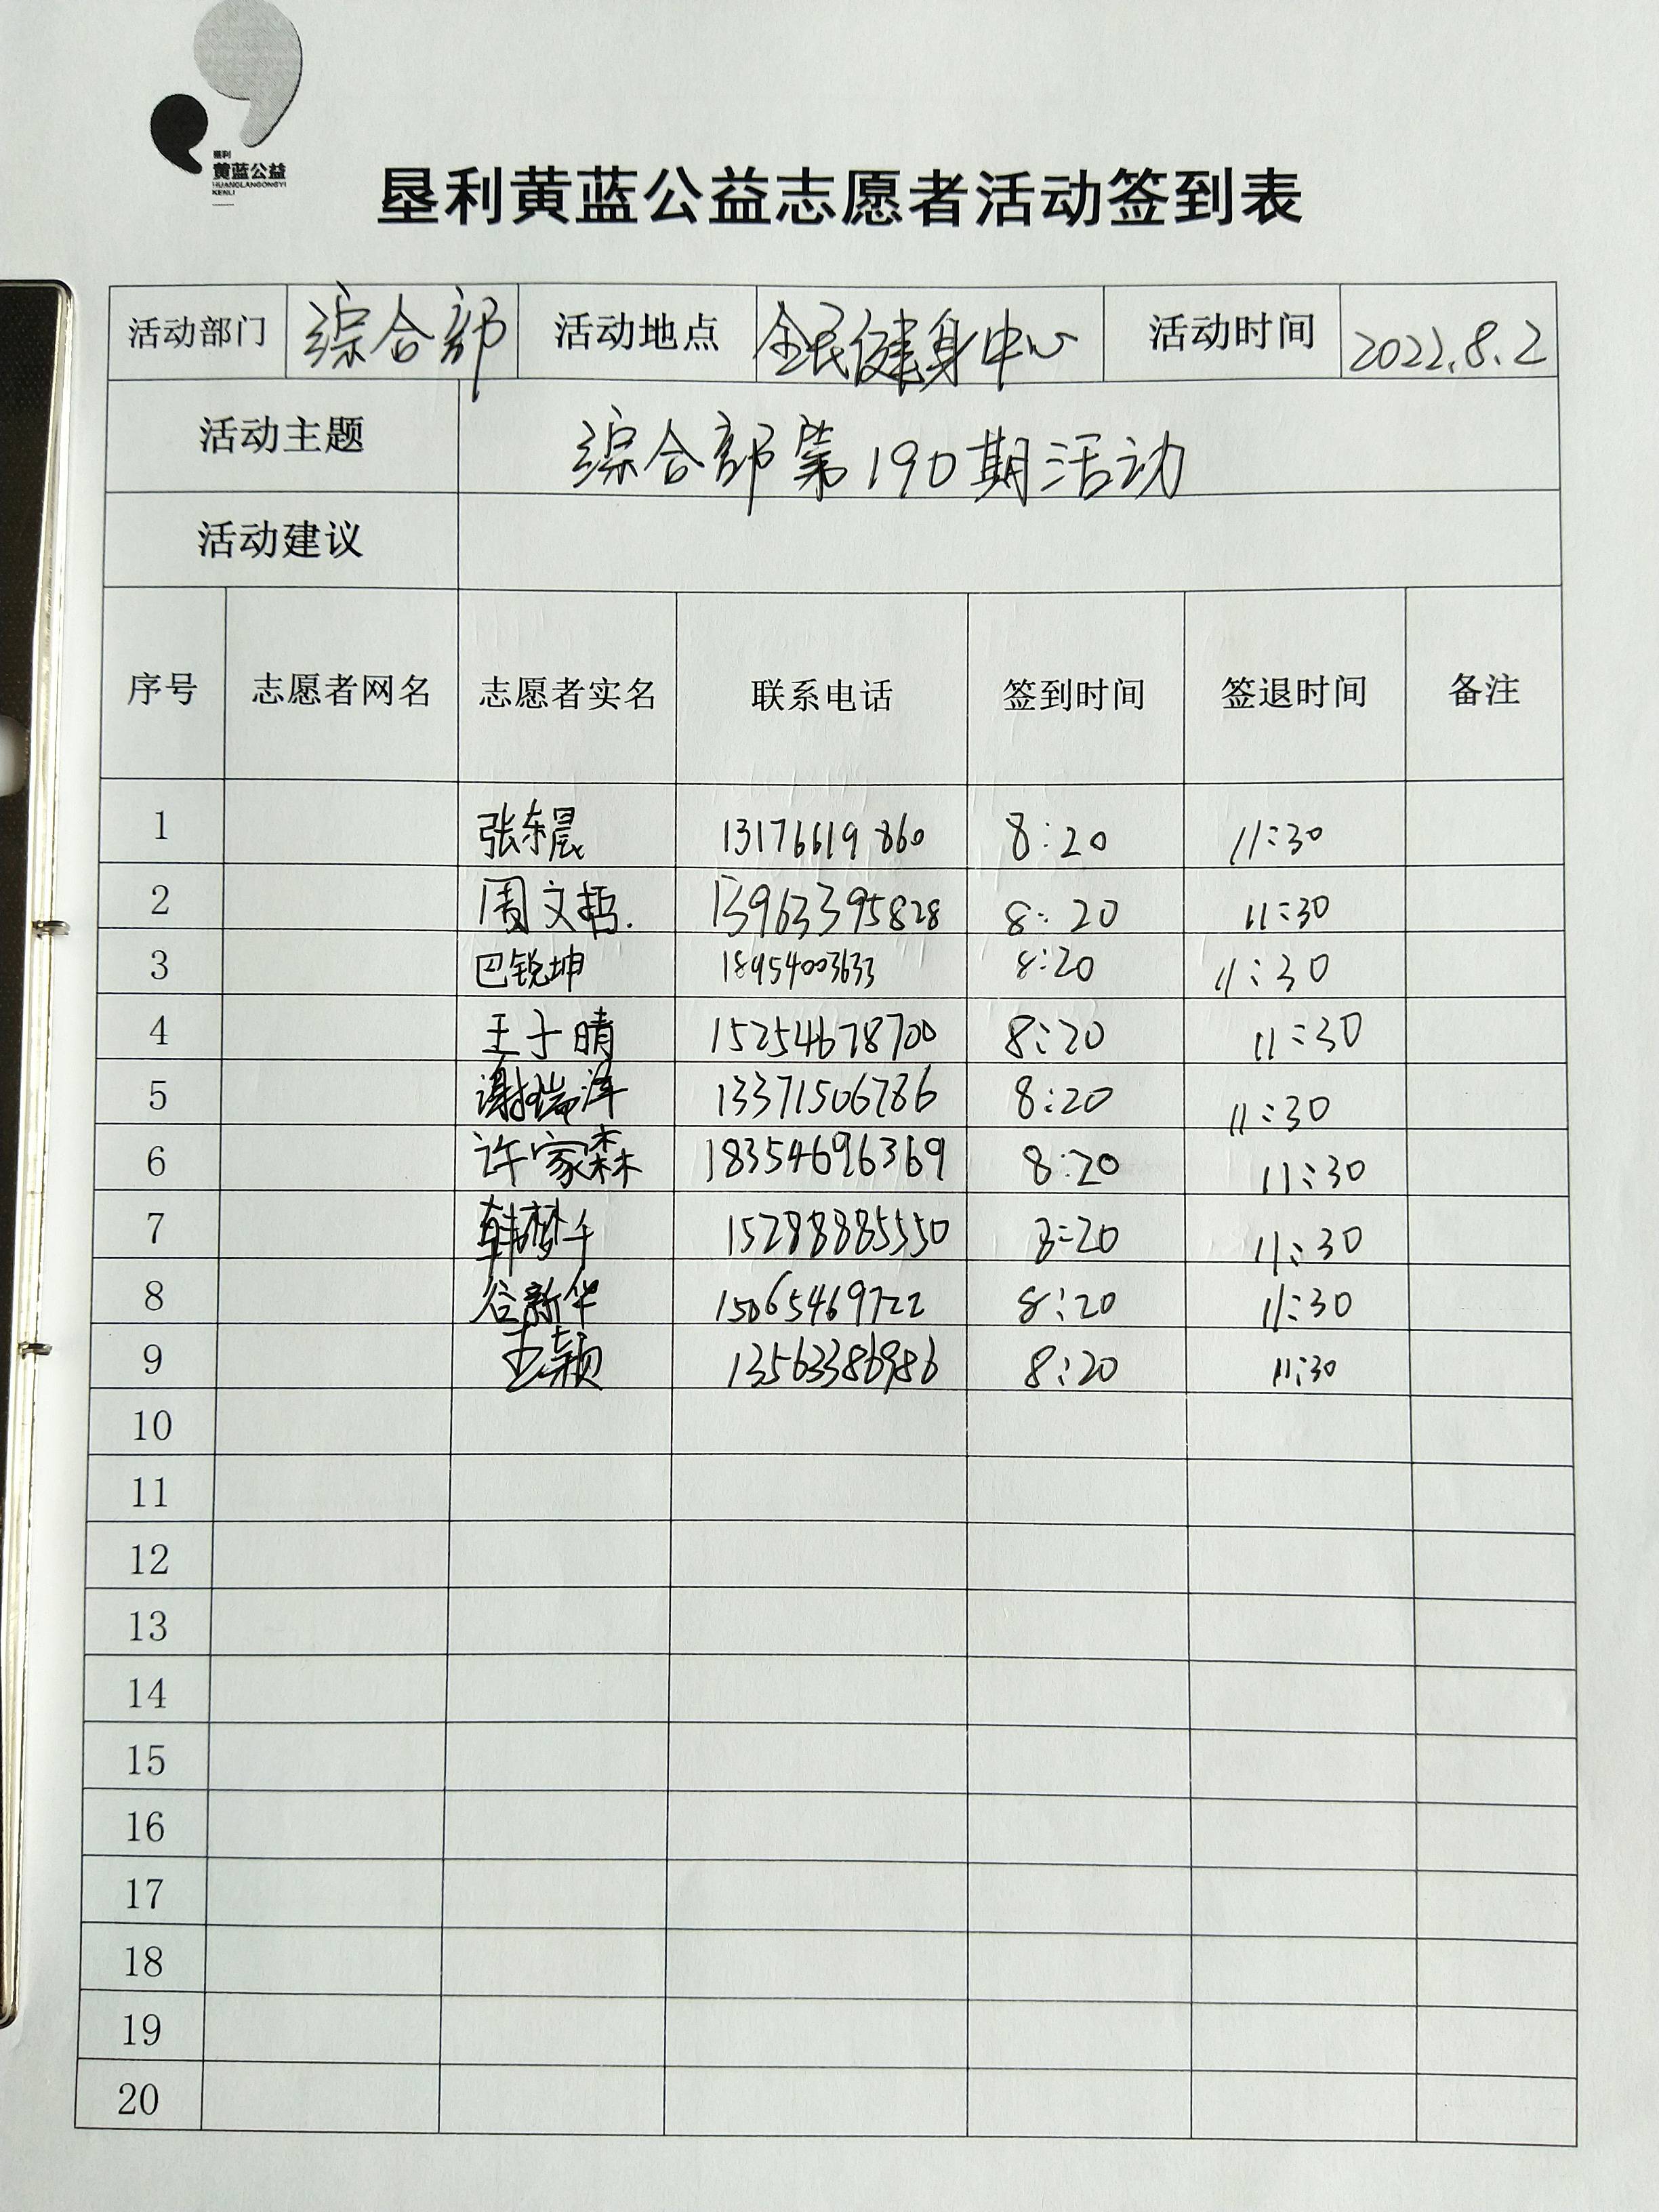 垦利
黄蓝公益
HUANGLANGONGYI
KENLI
垦利黄蓝公益志愿者活动签到表
活动部门 综合部 活动地点 全民健身中心 活动时间 2022.8.2
活动主题 综合部第190期活动
活动建议
序号 志愿者网名 志愿者实名 联系电话 签到时间 签退时间 备注
1 张东晨 13176619860 8:20 11:30
2 周文哲. 13963395828 8:20 11:30
3 巴锐坤 18954003633 8:20 11:30
4 王子晴 15254678700 8:20 11:30
5 谢瑞泽 13371506786 8:20 11:30
6 许家森 18354696369 8:20 11:30
7 韩梦千 15288885550 8:20 11:30
8 谷新华 15065469722 8:20 11:30
9 王颖 13563386986 8:20 11:30
10
11
12
13
14
15
16
17
18
19
20